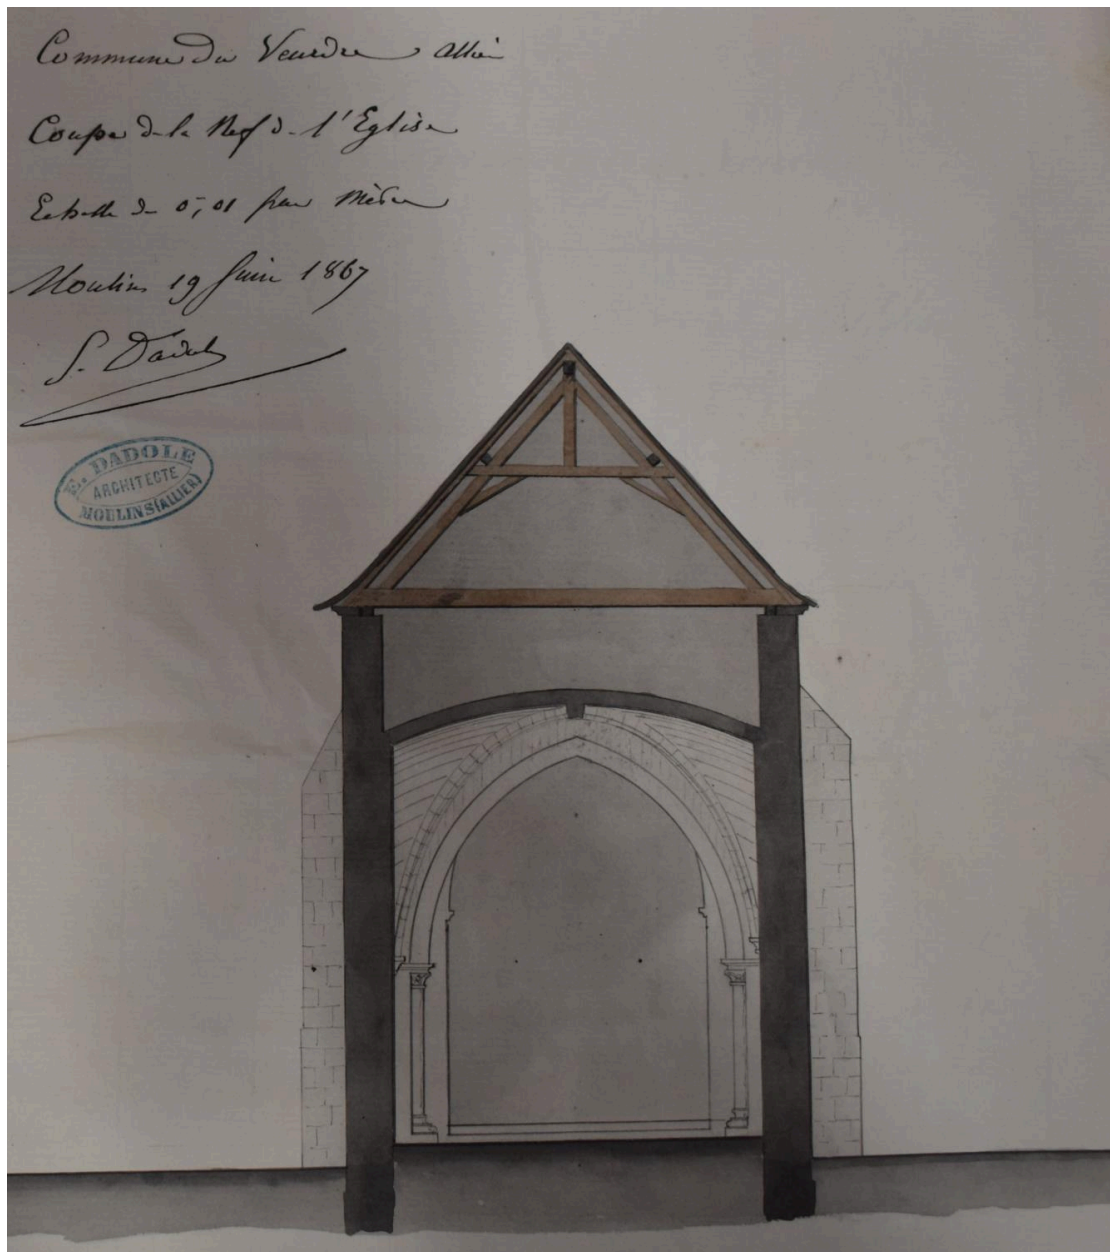 Commune du Veurdre Allier
Coupe de la Nef de l'Eglise
Echelle de 0,01 par Mètre
Moulins 19 Juin 1867
E. Dadole
E. DADOLE
ARCHITECTE
MOULINS (ALLIER)